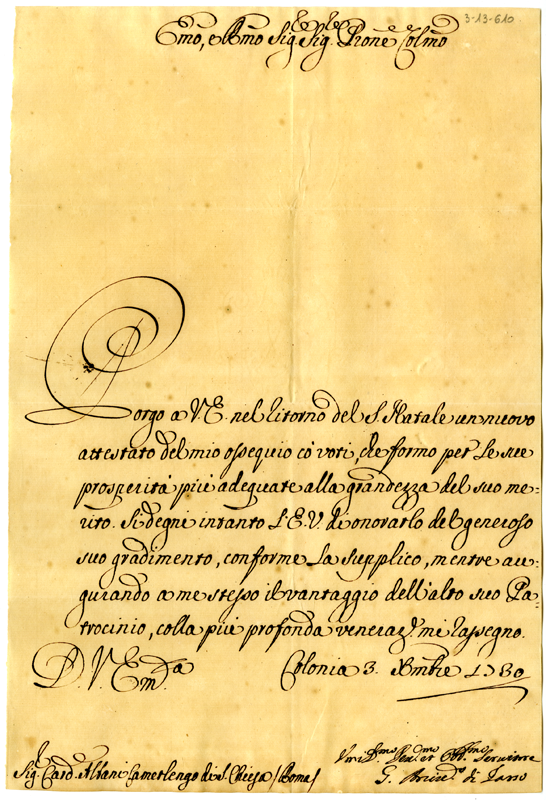 3-13-610
Emo, e Rmo Sig.re Sig. Prone Colmo
Porgo a V.E. nel ritorno del S. Natale un nuovo
attestato del mio ossequio co' voti, che formo per le sue
prosperità più adeguate alla grandezza del suo me=
rito. Si degni intanto l'E.V. di onorarlo del generoso
suo gradimento, conforme La supplico, mentre au=
gurando a me stesso il vantaggio dell'alto suo Pa=
trocinio, colla più profonda veneraz.e mi rassegno.
D. V. Em.za Colonia 3. Xmbre 1730
Sig.r Card. Albani Camerlengo di S. Chiesa / Roma /
Servitore
G. di